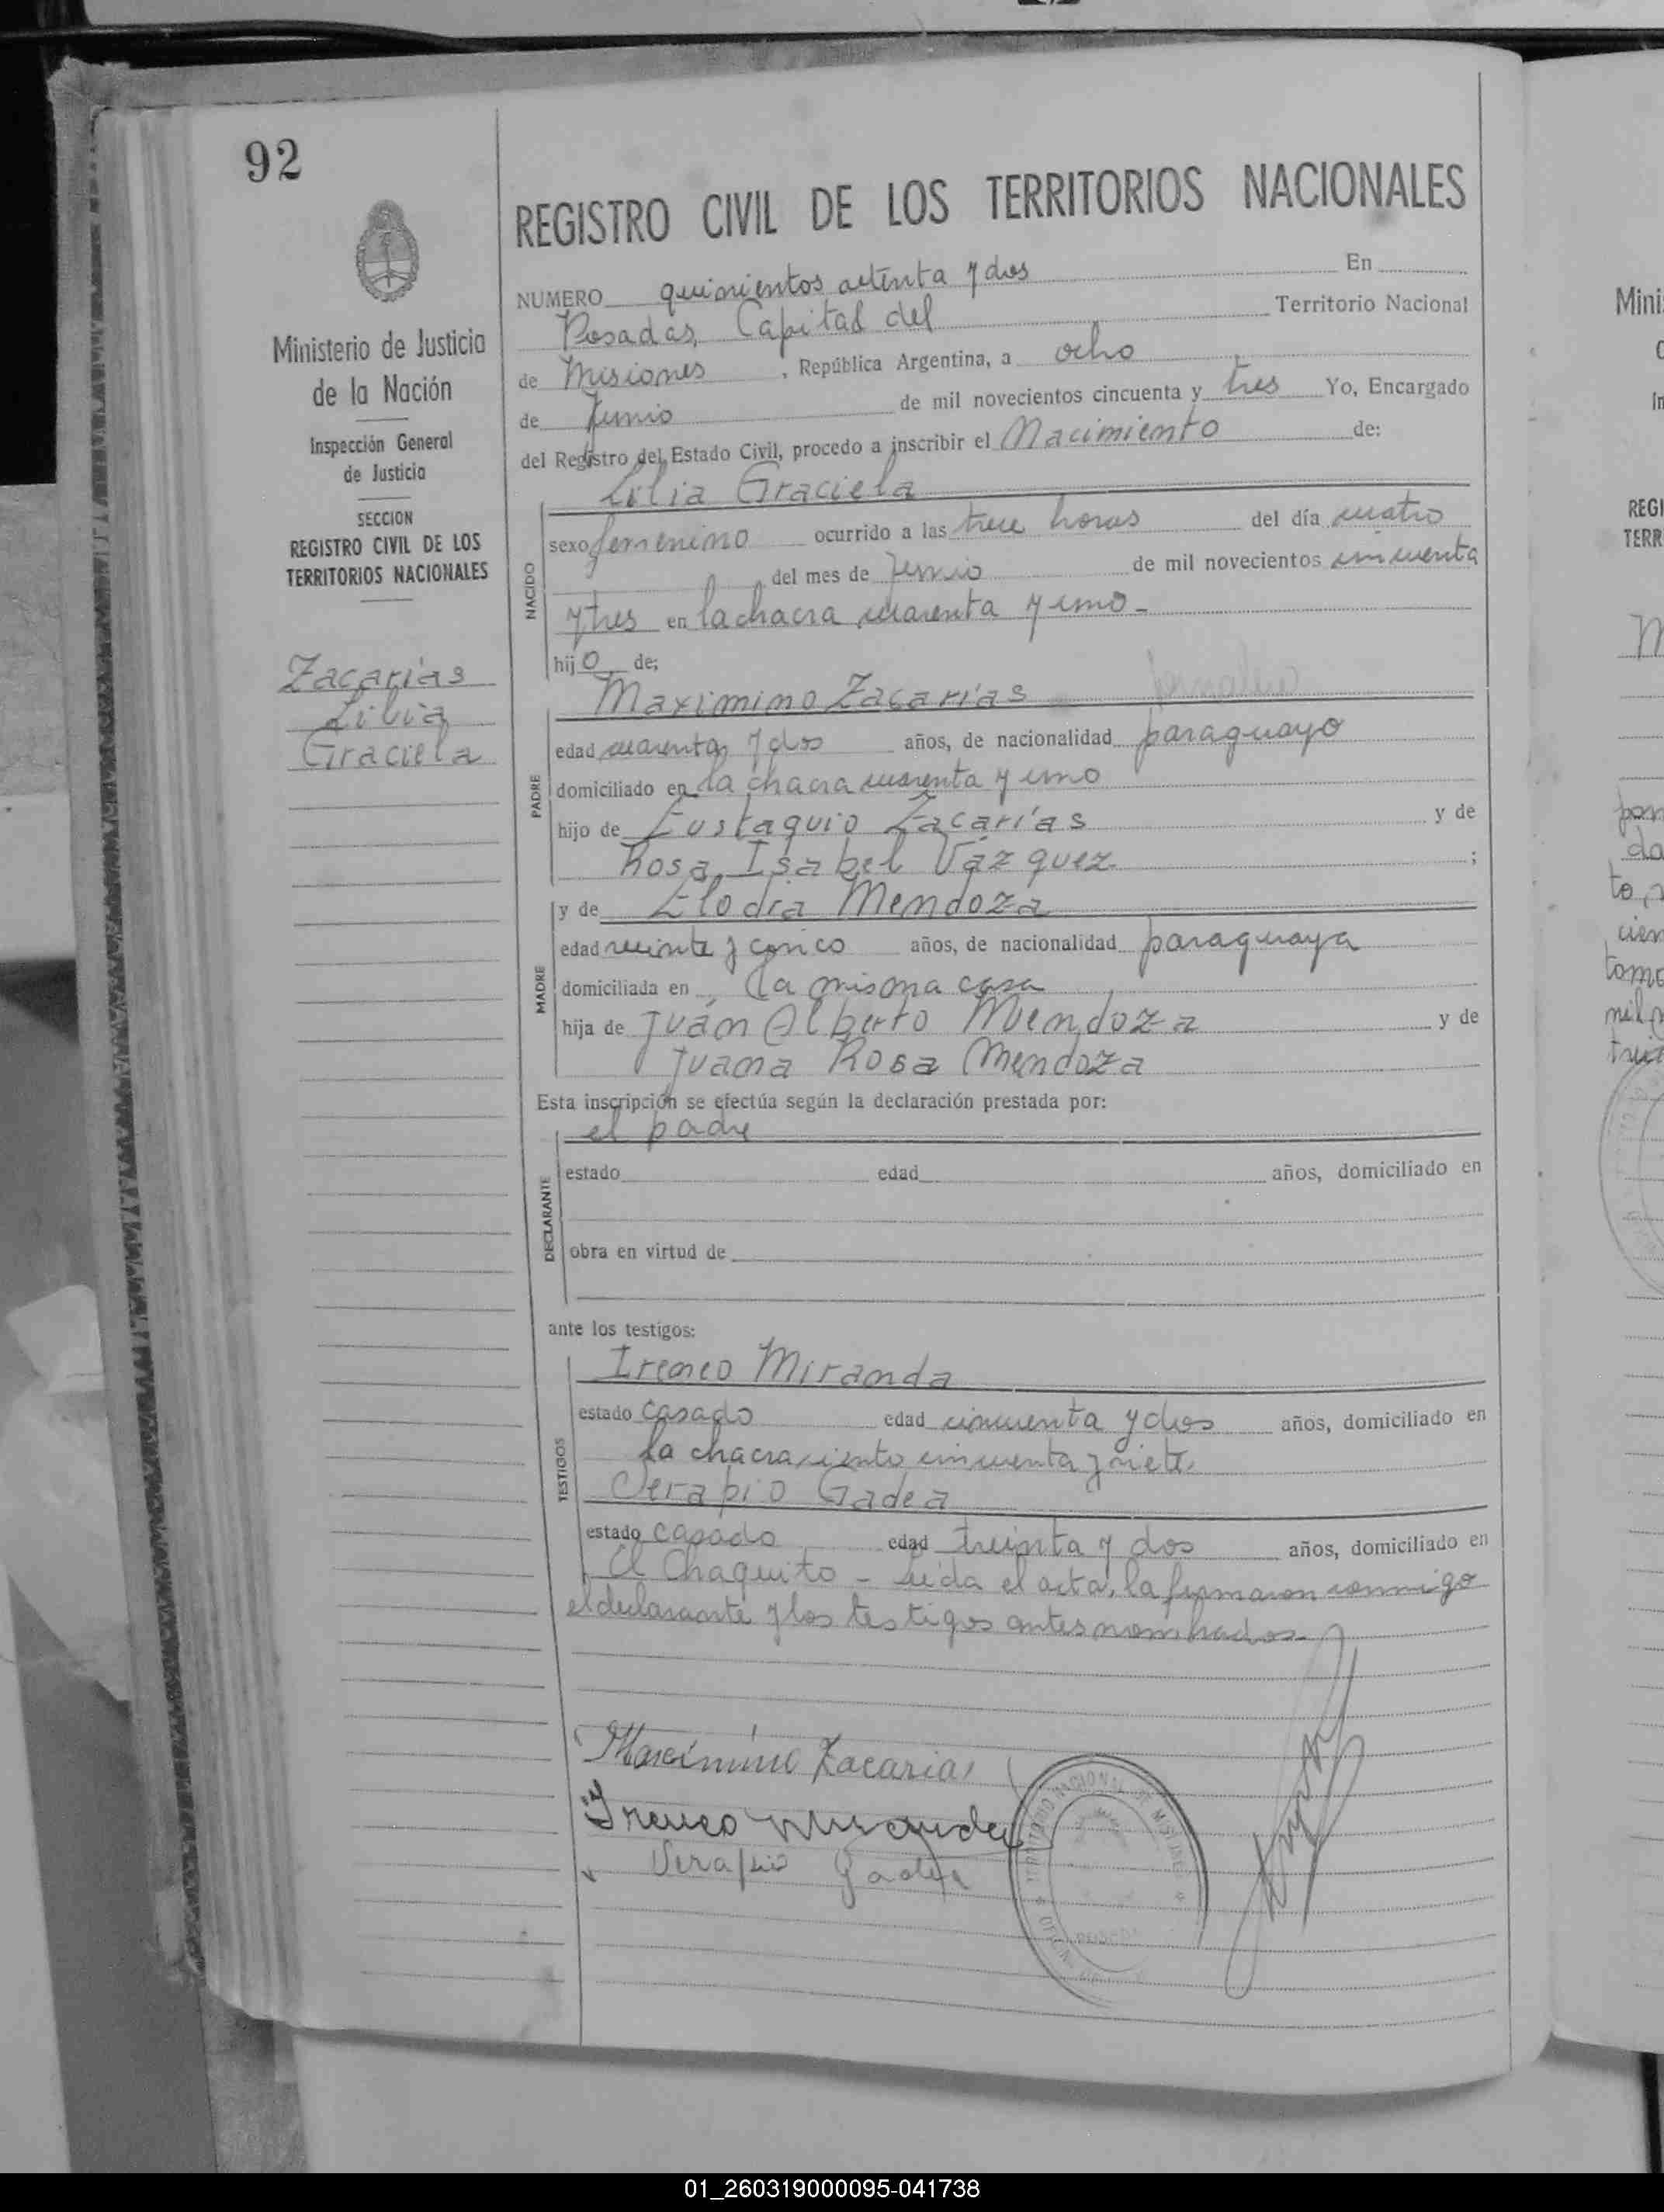 92
REGISTRO CIVIL DE LOS TERRITORIOS NACIONALES
Ministerio de Justicia
de la Nación
Inspección General
de Justicia
SECCION
REGISTRO CIVIL DE LOS
TERRITORIOS NACIONALES
Zacarías
Lilia
Graciela
NUMERO quinientos setenta y dos En
Posadas, Capital del Territorio Nacional
de Misiones, República Argentina, a ocho
de Junio de mil novecientos cincuenta y tres Yo, Encargado
del Registro del Estado Civil, procedo a inscribir el Nacimiento de:
Lilia Graciela
NACIDO
sexo femenino ocurrido a las trece horas del día cuatro
del mes de Junio de mil novecientos cincuenta
y tres en la chacra cuarenta y uno -
hijo de:
Maximino Zacarías
PADRE
edad cuarenta y dos años, de nacionalidad paraguayo
domiciliado en la chacra cuarenta y uno
hijo de Eustaquio Zacarías y de
Rosa Isabel Vázquez ;
y de Elodia Mendoza
MADRE
edad veinte y cinco años, de nacionalidad paraguaya
domiciliada en la misma casa
hija de Juan Alberto Mendoza y de
Juana Rosa Mendoza
Esta inscripción se efectúa según la declaración prestada por:
el padre
DECLARANTE
estado edad años, domiciliado en
obra en virtud de
ante los testigos:
Ireneo Miranda
TESTIGOS
estado casado edad cincuenta y dos años, domiciliado en
la chacra ciento cincuenta y siete.
Serapio Gadea
estado casado edad treinta y dos años, domiciliado en
El Chaquito - Leída el acta, la firmaron conmigo
el declarante y los testigos antes nombrados -
Maximino Zacarias
Ireneo Miranda
Serapio Gadea
TERRITORIO NACIONAL DE MISIONES
POSADAS
Mini
REGI
TERR
01_260319000095-041738